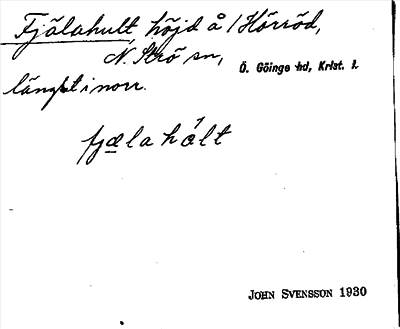 Fjälahult, höjd å 1 Hörröd,
N. Strö sn,
Ö. Göinge hd, Krist. l.
längst i norr.
fjælahålt
JOHN SVENSSON 1930